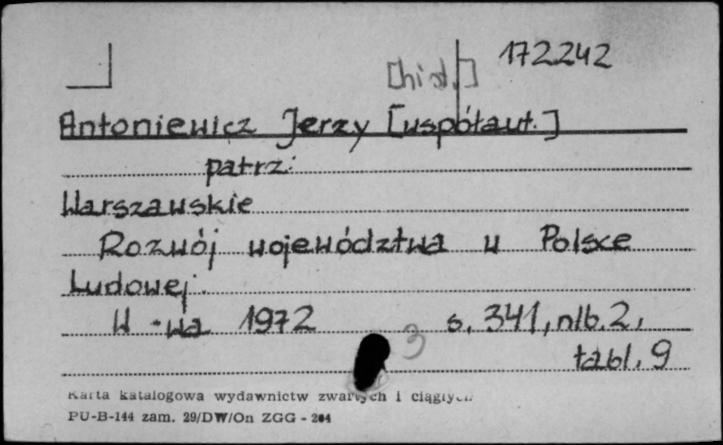 172242
[hist.]
Antoniewicz Jerzy [współaut.]
patrz:
Warszawskie
Rozwój województwa w Polsce
Ludowej.
W-wa 1972 s. 341, nlb. 2,
3
tabl. 9
Karta katalogowa wydawnictw zwartych i ciągłych
PU-B-144 zam. 29/DW/On ZGG - 204